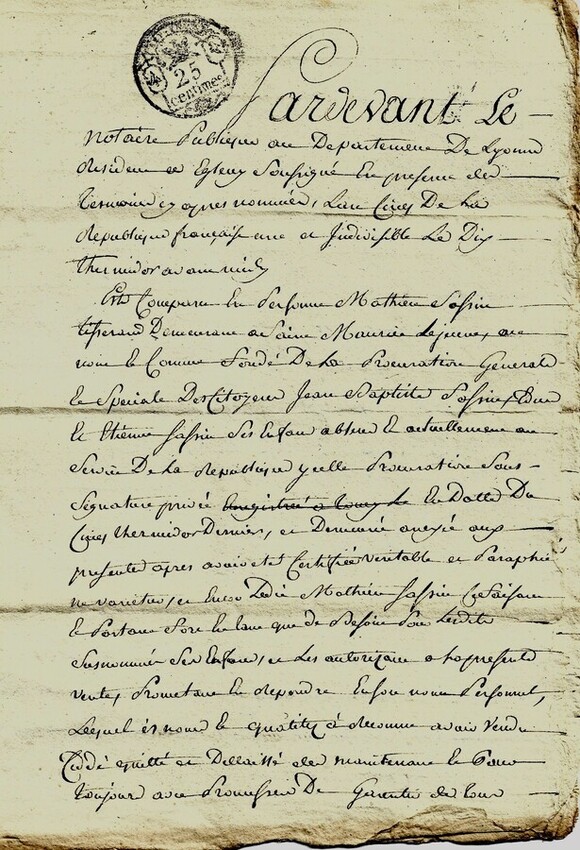 25
centimes
Pardevant Le
notaire Publique au Departement De Lyonne
residence Egleny Soussigné En presence des
Temoins cy apres nommés, Lan Cinq De La
Republique francaise une et Indivisible Le Dix
thermidor avant midy
Est Comparu En Personne Mathieu Sassin
tisserand Demeurant a Saint Maurice Lejeune, au
nom et Comme fondé De La Procuration General
et Speciale Des Citoyens Jean Baptiste Sassin
Et Etienne Sassin Ses Enfans absens et actuellement au
Service De La Republique ycelle Procuration Sous
Signature privée Enregistrée a toucy Le En Datte Du
Cinq thermidor Dernier, et Demeurée anexée aux
presente apres avoir eté Certifiée veritable et Paraphée
ne varietur, et Encor Ledit Mathieu Sassin Se faisant
et Portant fort En tant que de Besoin Pour Lesdits
Susnommés Ses Enfans, et Les autorisant a la presente
vente, Prometant En repondre En son nom Personnel,
Lequel és noms et qualités à reconnu avoir vendu
Cédé quitté et Dellaissé des maintenant et Pour
toujours avec Promesse De Garantie de tous